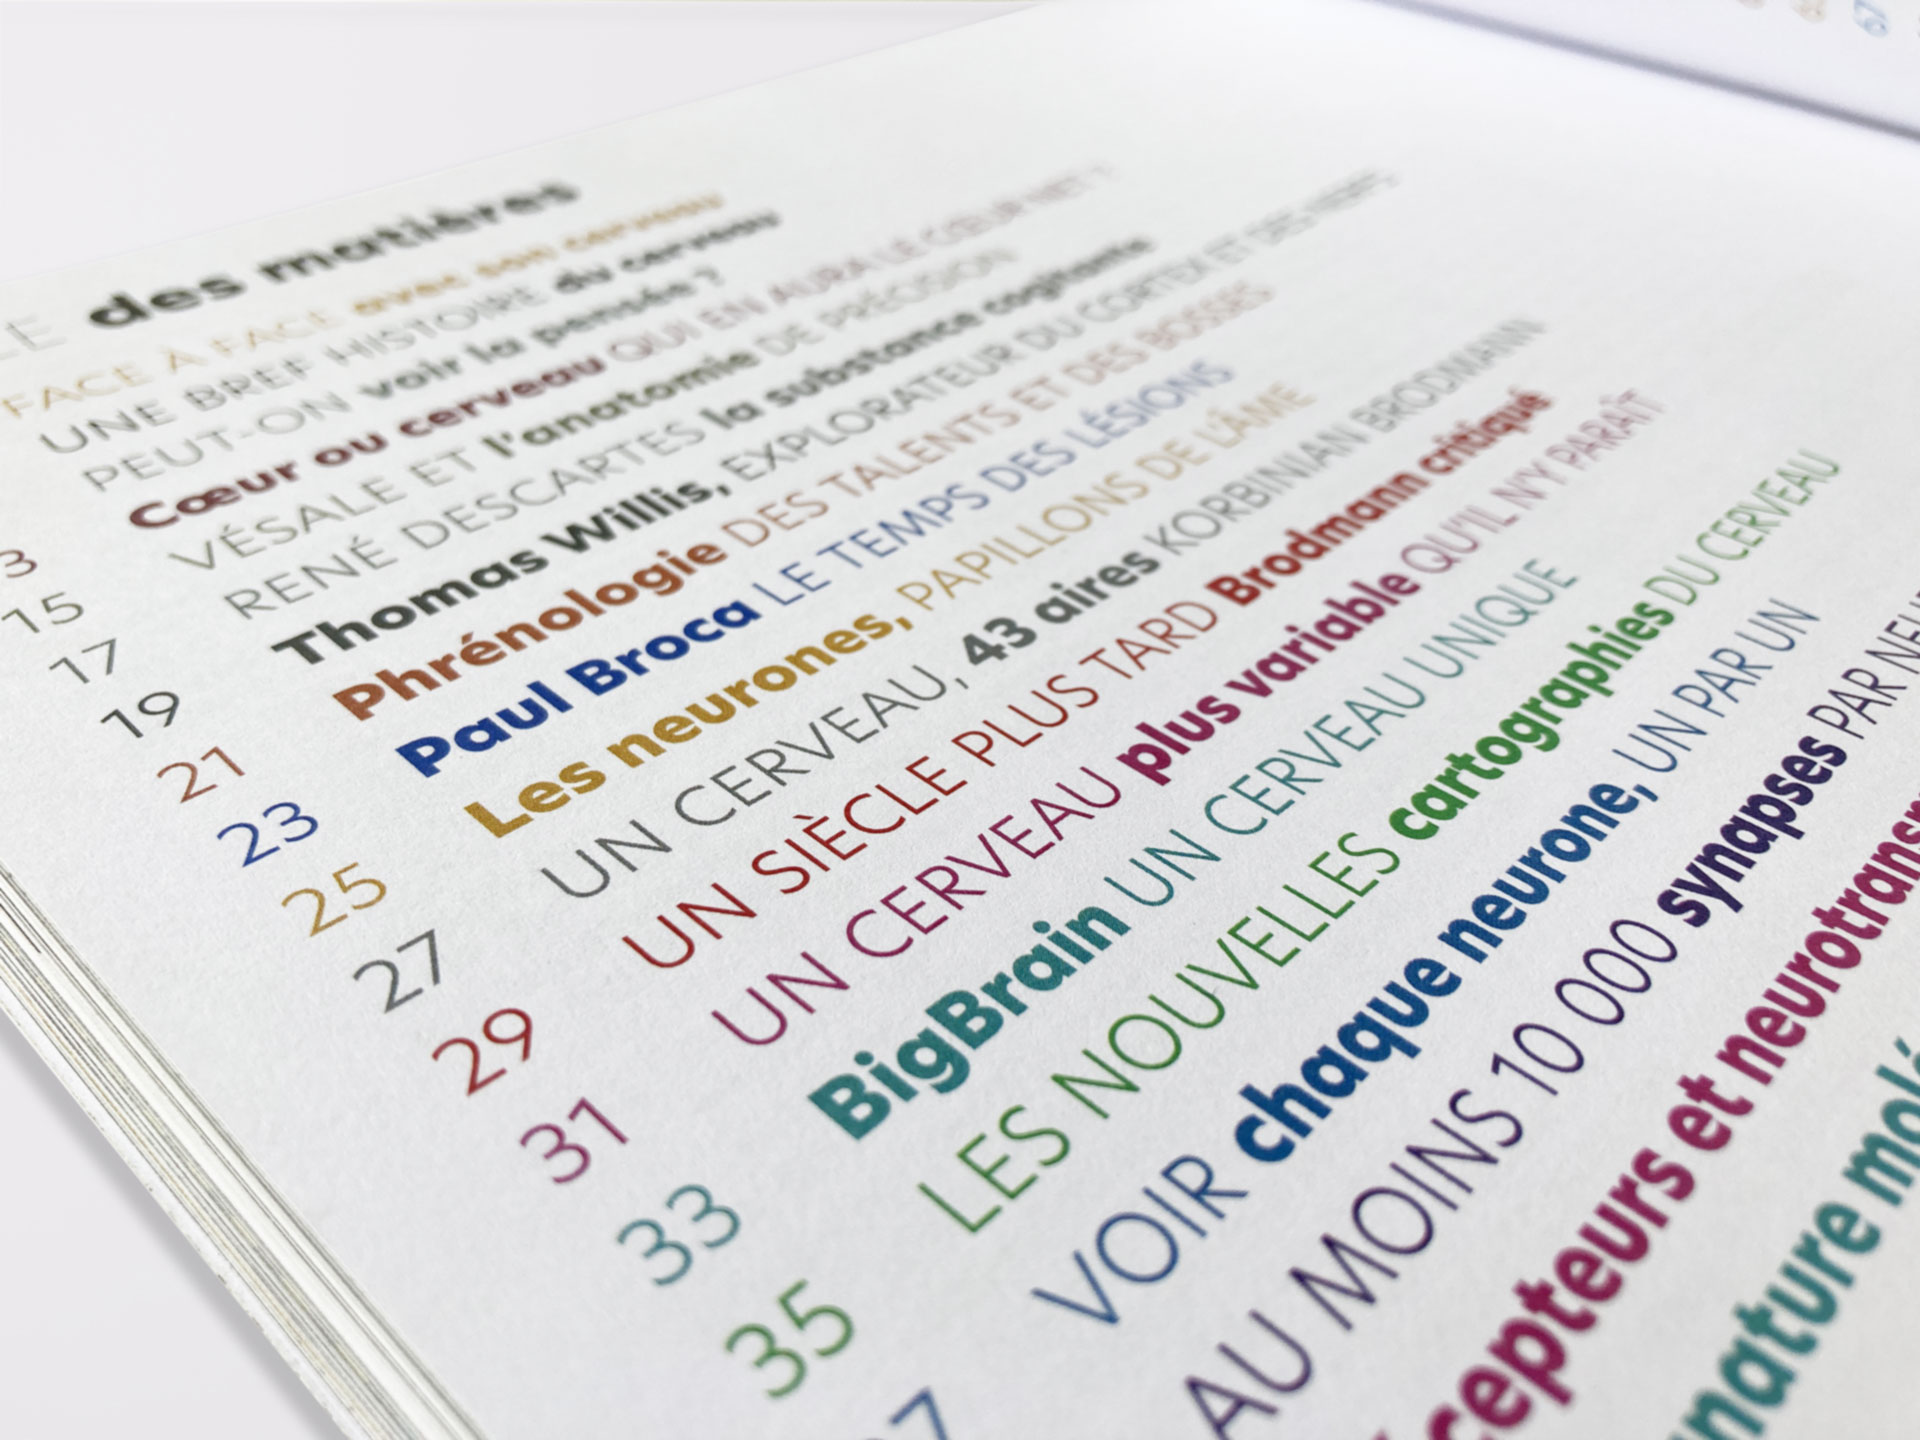 LE des matières
FACE À FACE avec son cerveau
UNE BREF HISTOIRE du cerveau
PEUT-ON voir la pensée ?
Cœur ou cerveau QUI EN AURA LE CŒUR NET ?
VÉSALE ET l'anatomie DE PRÉCISION
RENÉ DESCARTES la substance cogitante
15 Thomas Willis, EXPLORATEUR DU CORTEX ET DES NERFS
17 Phrénologie DES TALENTS ET DES BOSSES
19 Paul Broca LE TEMPS DES LÉSIONS
21 Les neurones, PAPILLONS DE L'ÂME
23 UN CERVEAU, 43 aires KORBINIAN BRODMANN
25 UN SIÈCLE PLUS TARD Brodmann critiqué
27 UN CERVEAU plus variable QU'IL N'Y PARAÎT
29 BigBrain UN CERVEAU UNIQUE
31 LES NOUVELLES cartographies DU CERVEAU
33 VOIR chaque neurone, UN PAR UN
35 AU MOINS 10 000 synapses PAR
et
67